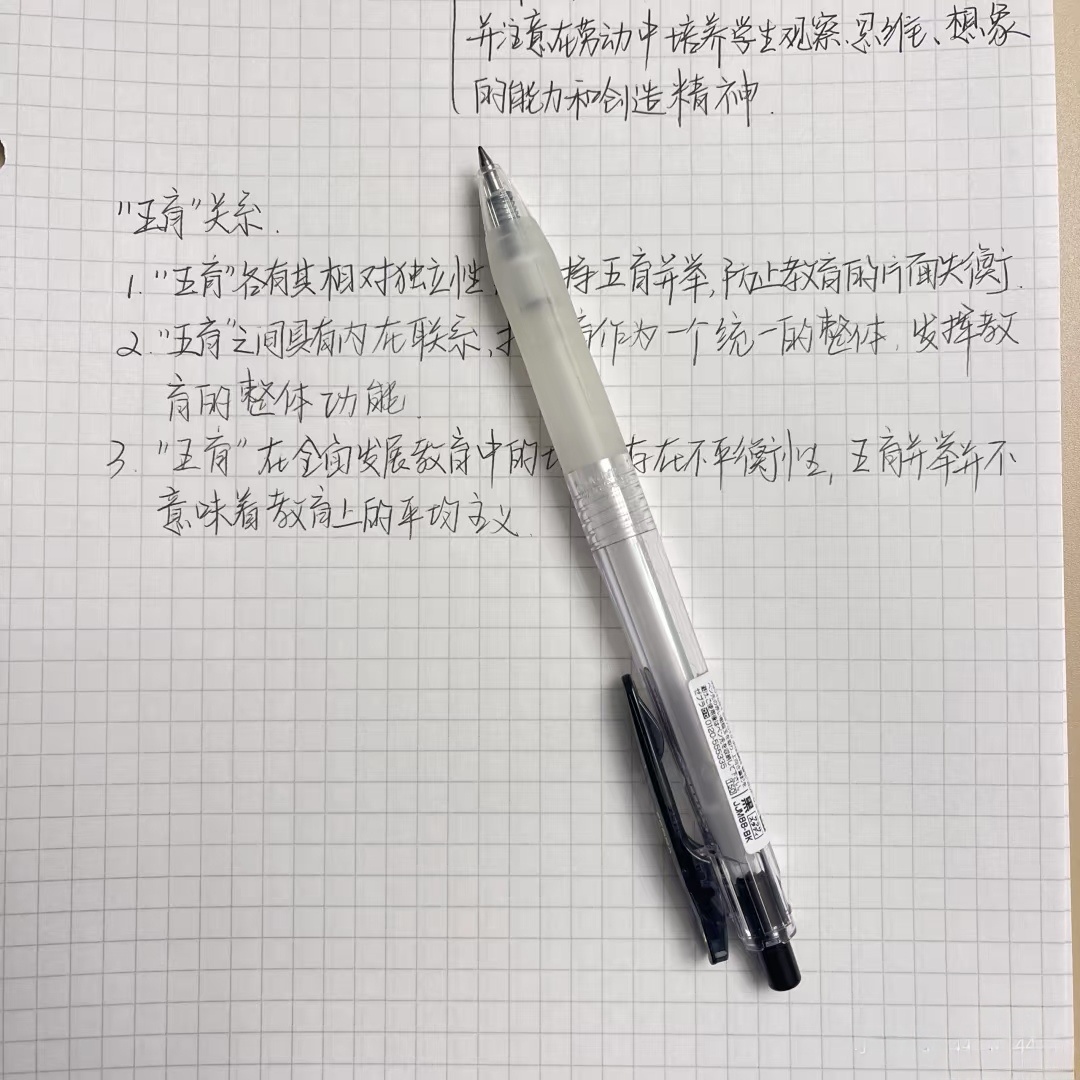 并注意在劳动中培养学生观察、思维、想象
的能力和创造精神.
"五育"关系.
1. "五育"各有其相对独立性, 持五育并举, 防止教育的片面失衡.
2. "五育"之间具有内在联系, 育作为一个统一的整体. 发挥教
育的整体功能.
3. "五育"在全面发展教育中的 存在不平衡性, 五育并举并不
意味着教育上的平均主义.
0120-555335
黒
JJM88-BK